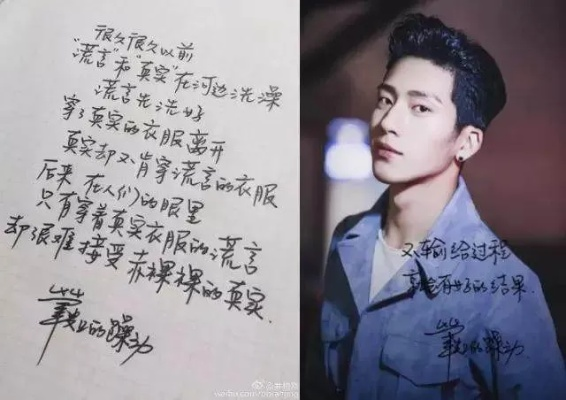 很久很久以前
“谎言”和“真实”在河边洗澡
谎言先洗好
穿了真实的衣服离开
真实却不肯穿谎言的衣服
后来 在人们的眼里
只有穿着真实衣服的谎言
却很难接受赤裸裸的真实.
的躁动
不输给过程
会有好的结果.
的躁动